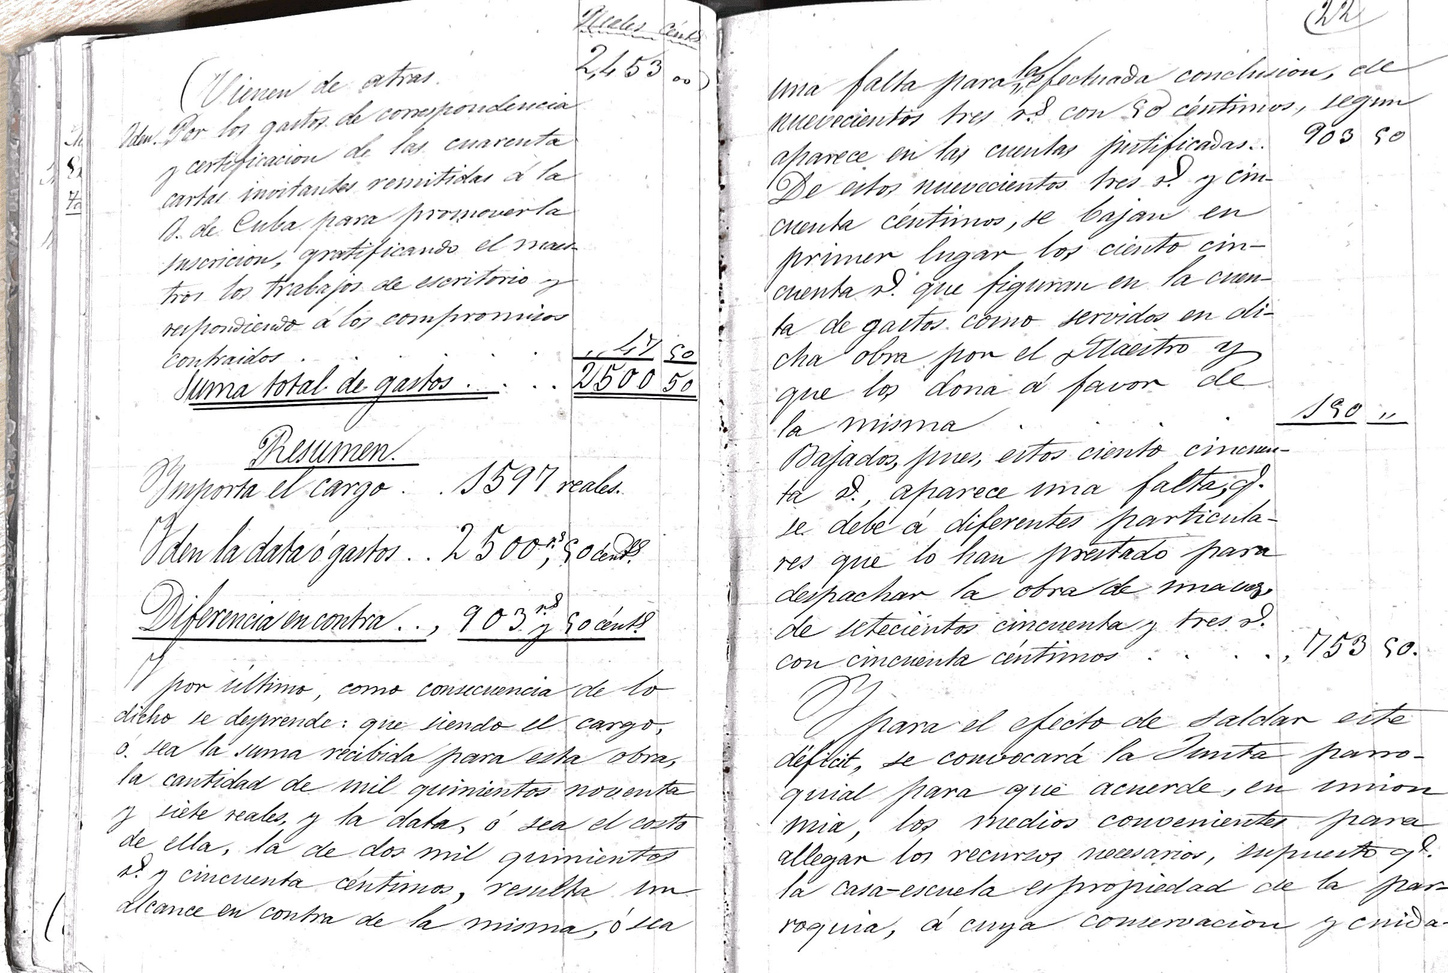 Reales cénts
(Vienen de atras. 2,453 00)
Iden. Por los gastos de correspondencia
y certificacion de las cuarenta
cartas invitantes remitidas á la
I. de Cuba para promover la
suscricion, gratificando el maes-
tros los trabajos de escritorio y
respondiendo á los compromisos
contraidos . . . . . ,, 47 50
Suma total de gastos . . . . 2500 50
Resumen.
Importa el cargo . . 1597 reales.
Iden la data ó gastos . . 2500 rs, 50 cénts.
Diferencia en contra . . , 903 rs y 50 cénts.
Y por último, como consecuencia de lo
dicho se desprende: que siendo el cargo,
ó sea la suma recibida para esta obra,
la cantidad de mil quinientos noventa
y siete reales, y la data, ó sea el costo
de ella, la de dos mil quinientos
rs. y cincuenta céntimos, resulta un
alcance en contra de la misma, ó sea
(22
una falta para la efectuada conclusion, de
nuevecientos tres rs. con 50 céntimos, segun
aparece en las cuentas justificadas.. 903 50
De estos nuevecientos tres rs. y cin-
cuenta céntimos, se bajan en
primer lugar los ciento cin-
cuenta rs. que figuran en la cuen-
ta de gastos como servidos en di-
cha obra por el Maestro y
que los dona a favor de
la misma . . . 150 ,,
Bajados, pues, estos ciento cincuen-
ta rs., aparece una falta, q.
se debe á diferentes particula-
res que lo han prestado para
despachar la obra de una vez,
de setecientos cincuenta y tres rs.
con cincuenta céntimos . . . . , 753 50.
Y para el efecto de saldar este
déficit, se convocará la Junta parro-
quial para que acuerde, en union
mia, los medios convenientes para
allegar los recursos necesarios, supuesto q.
la casa-escuela es propiedad de la par-
roquia, á cuya conservacion y cuida-